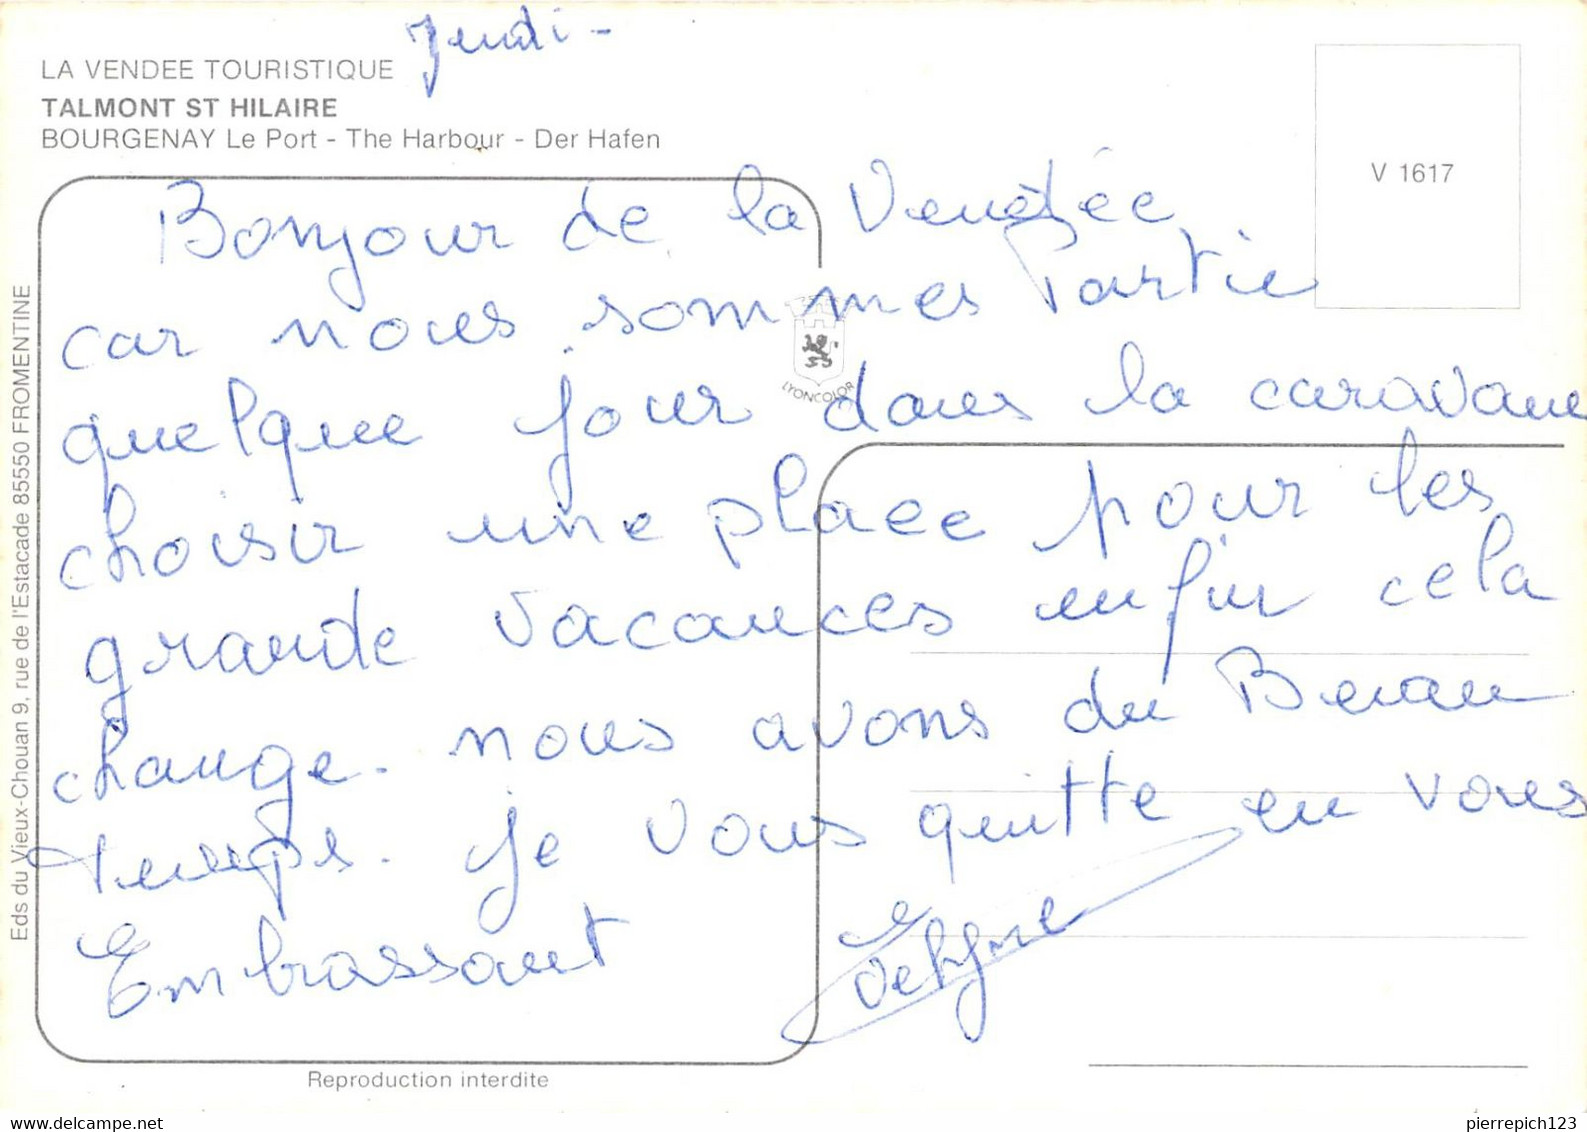 Jeudi -
LA VENDEE TOURISTIQUE
TALMONT ST HILAIRE
BOURGENAY Le Port - The Harbour - Der Hafen
V 1617
Bonjour de la Vendée
car nous sommes Partie
quelque jour dans la caravane
choisir une place pour les
grande vacances enfin cela
change. nous avons du Beau
temps. je vous quitte en vous
Embrassant
LYONCOLOR
Eds du Vieux-Chouan 9, rue de l'Estacade 85550 FROMENTINE
Reproduction interdite
delcampe.net
pierrepich123